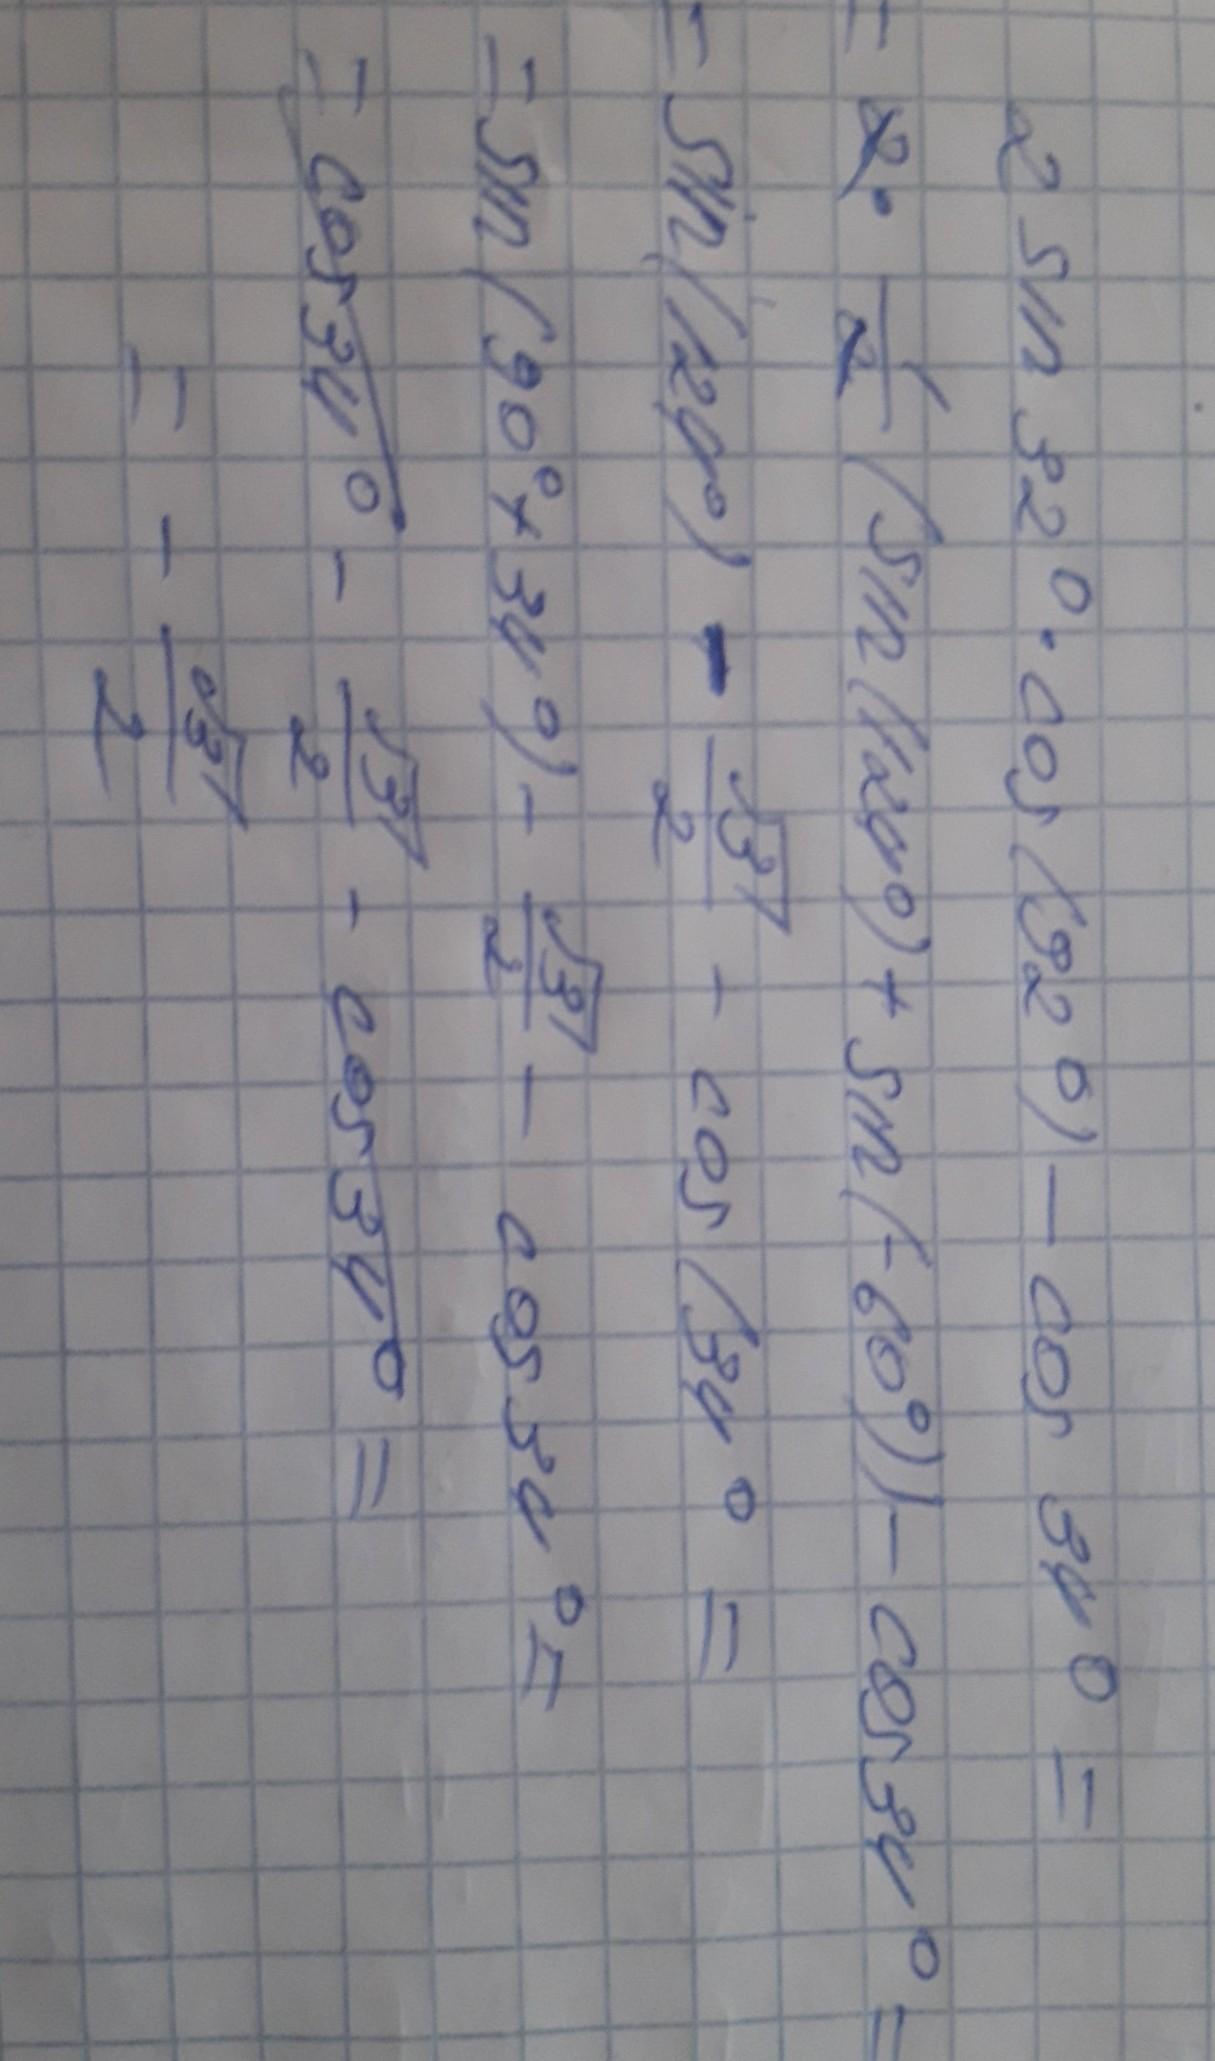 2 sin 32° · cos (92°) − cos 34° =
= 2 · 1/2 (sin (124°) + sin (−60°)) − cos 34° =
= sin (124°) − √3/2 − cos (34° =
= sin (90° + 34°) − √3/2 − cos 34° =
= cos 34° − √3/2 − cos 34° =
= − √3/2